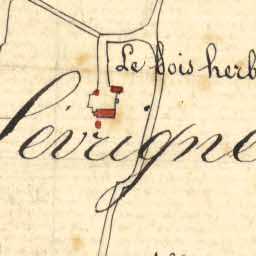 Le bois herb
Sévrigne